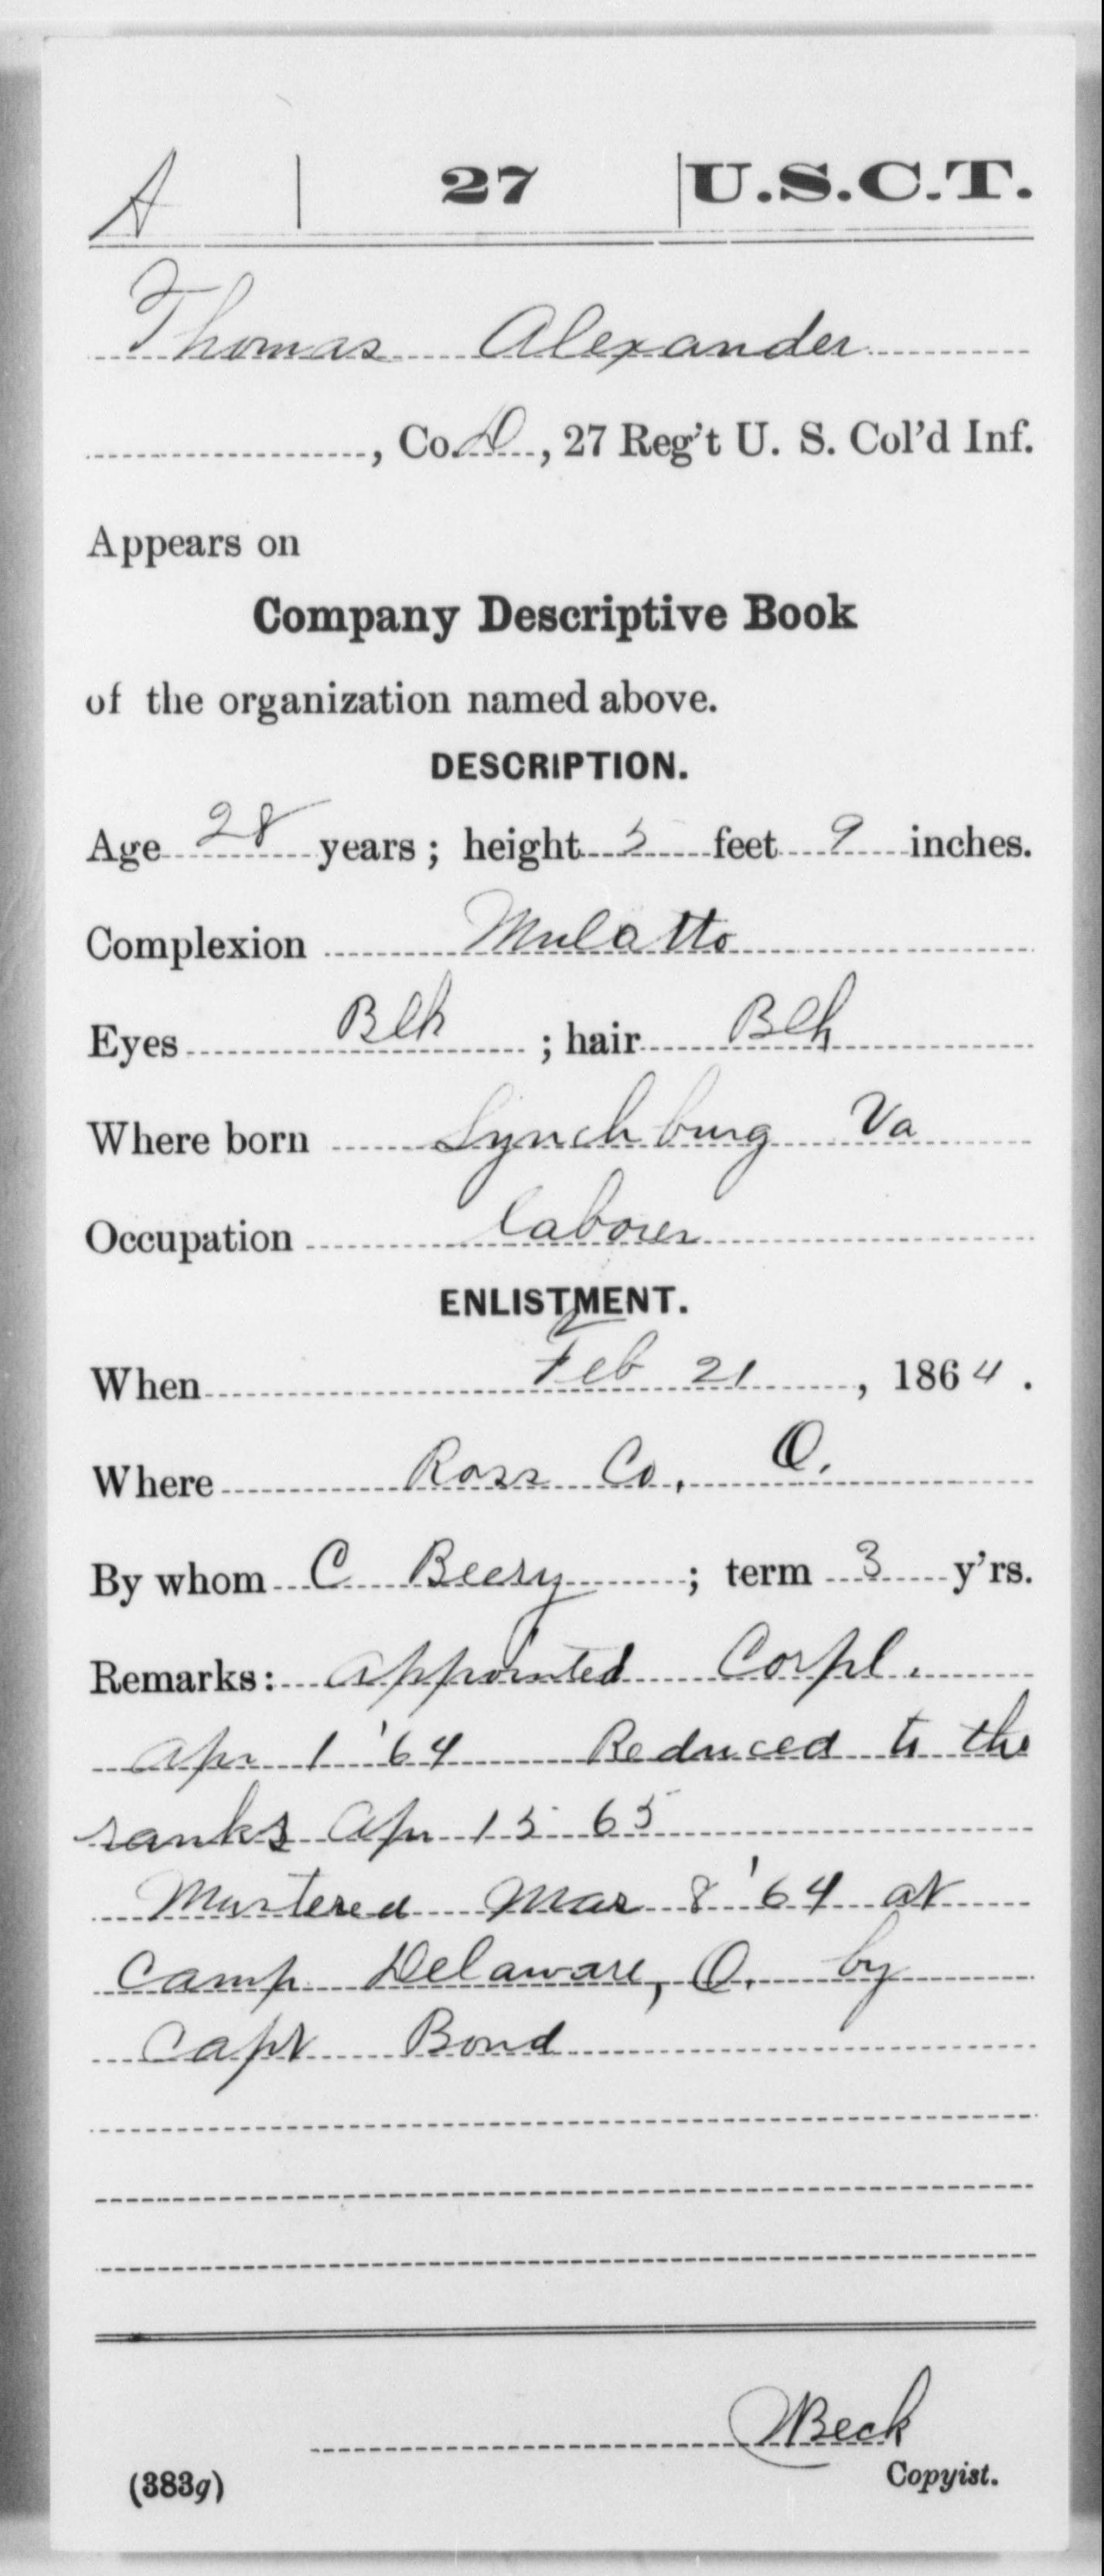 A | 27 | U.S.C.T.
Thomas Alexander
, Co. D, 27 Reg't U. S. Col'd Inf.
Appears on
Company Descriptive Book
of the organization named above.
DESCRIPTION.
Age 28 years; height 5 feet 9 inches.
Complexion Mulatto
Eyes Blk ; hair Blk
Where born Lynchburg Va
Occupation laborer
ENLISTMENT.
When Feb 21, 1864.
Where Ross Co. O.
By whom C Beery; term 3 y'rs.
Remarks: Appointed Corpl.
Apr 1 '64 Reduced to the
ranks Apr 15 65
Mustered Mar 8 '64 at
Camp Delaware, O. by
Capt Bond
Beck
Copyist.
(383g)